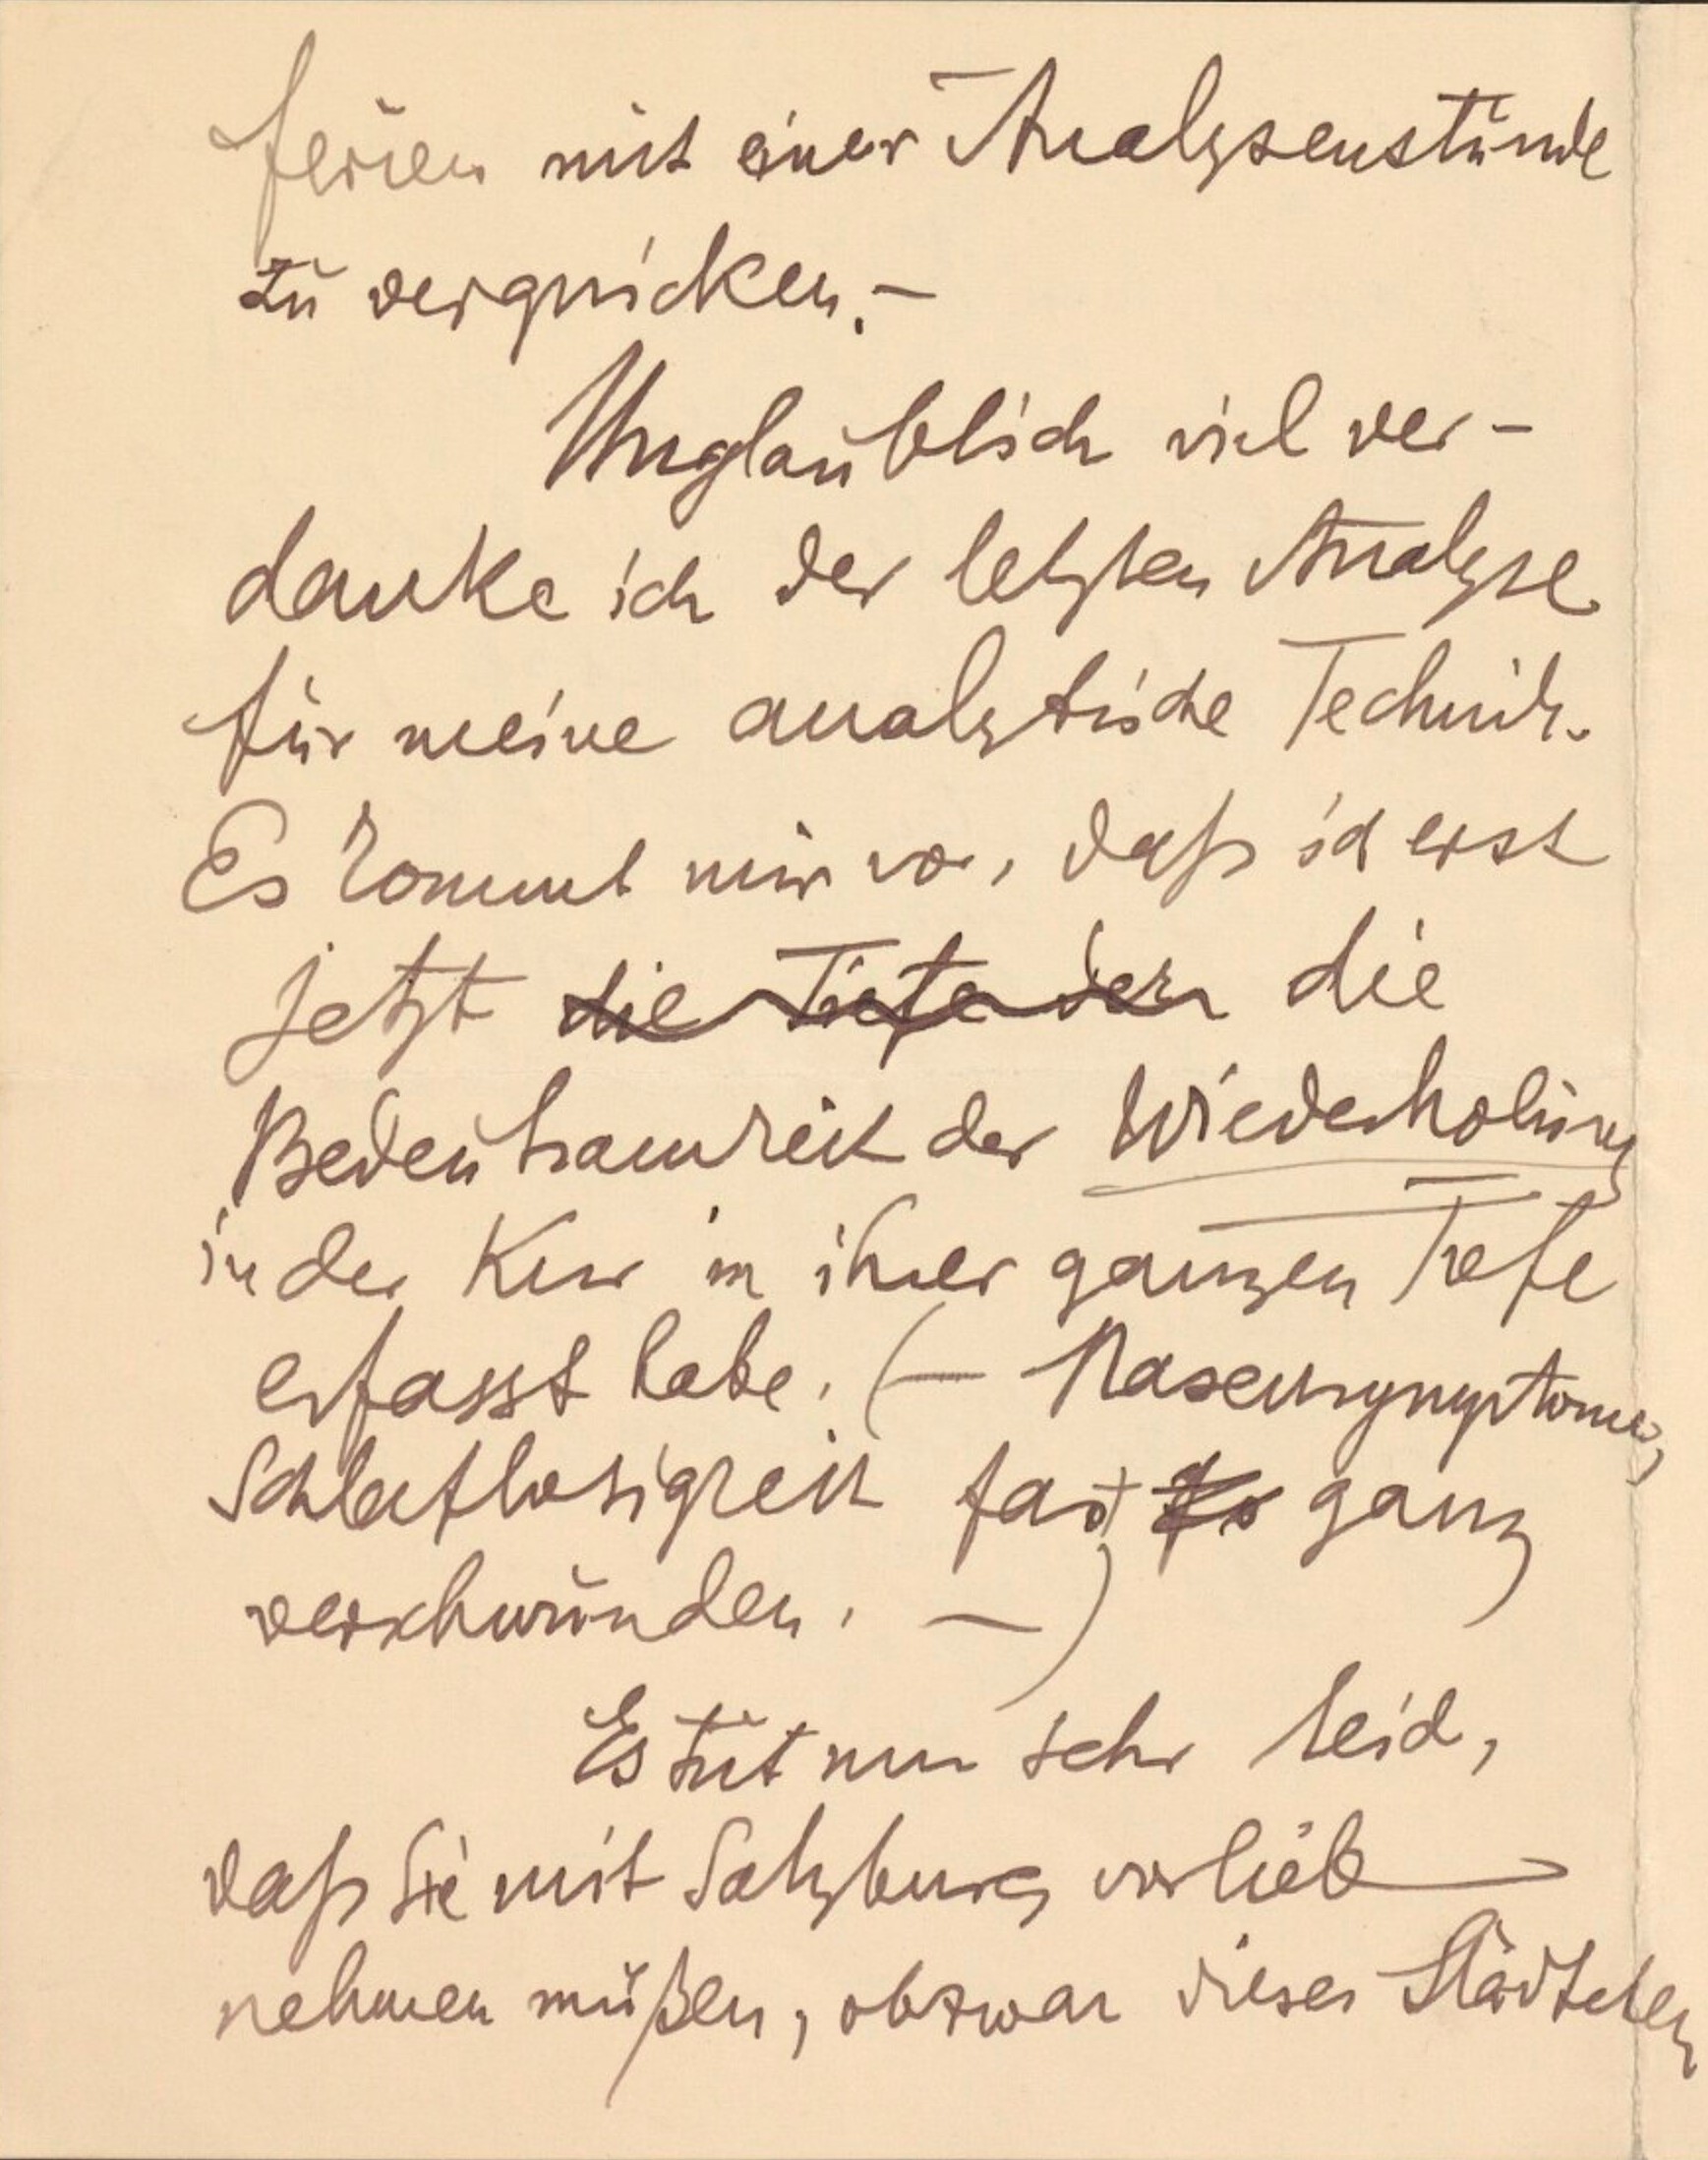 ferien mit einer Analysenstunde
zu verquicken. –
Unglaublich viel ver-
danke ich der letzten Analyse
für meine analytische Technik.
Es kommt mir vor, daß ich erst
jetzt die Tiefe der die
Bedeutsamkeit der Wiederholung
in der Kur in ihrer ganzen Tiefe
erfasst habe. (– Nasensymptome,
Schlaflosigkeit fast ganz
verschwunden. –)
Es tut mir sehr leid,
daß Sie mit Salzburg vorlieb
nehmen müßen, obzwar dieses Städtchen